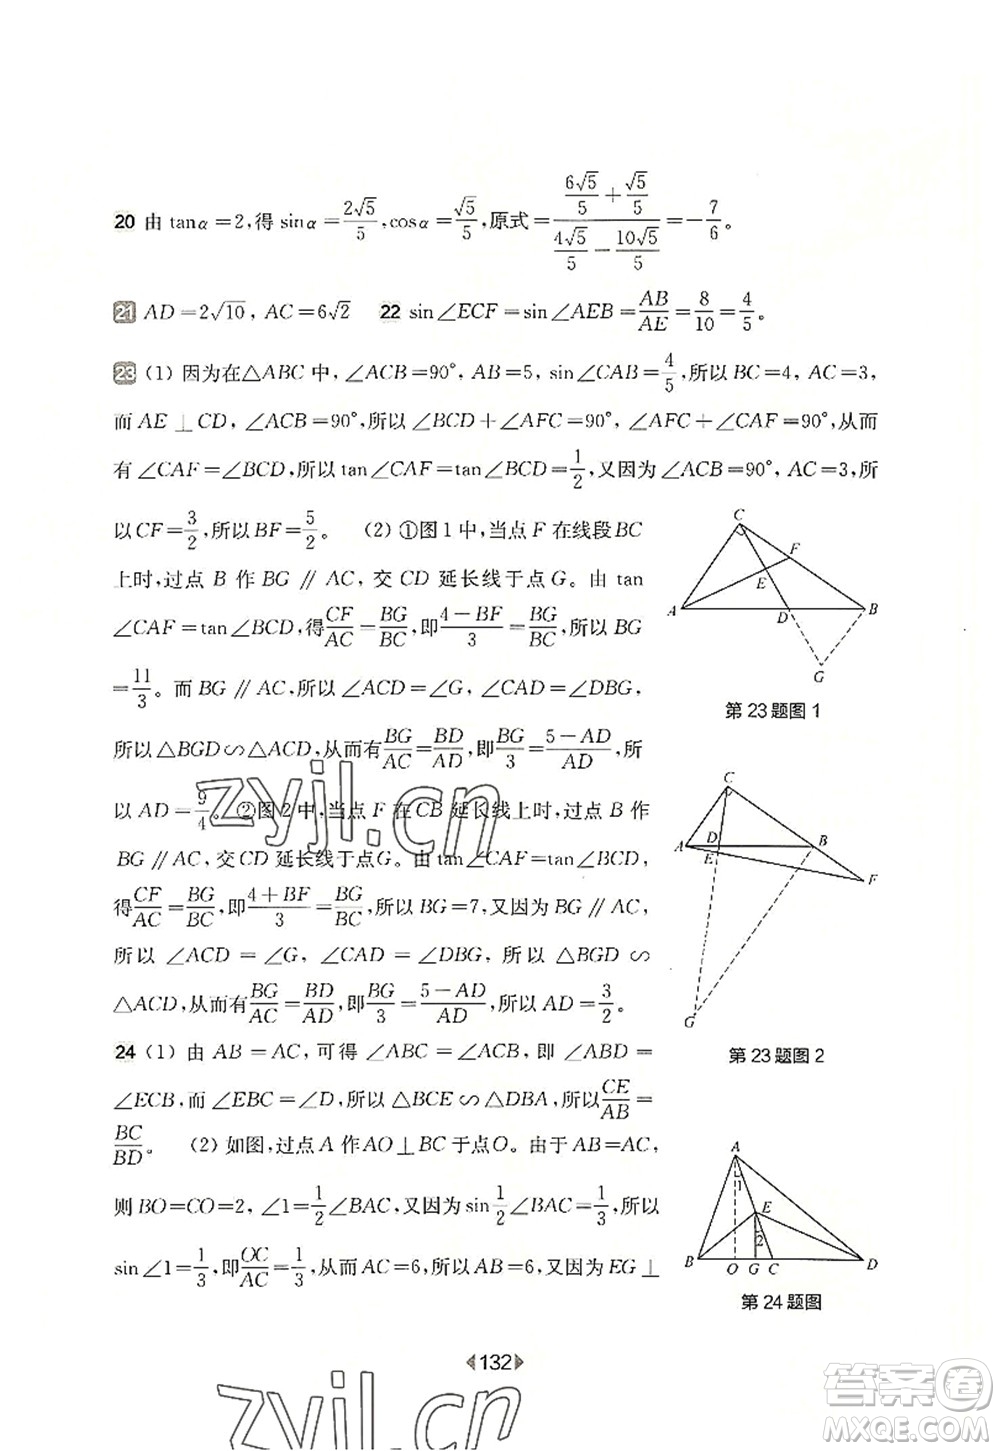 20 由 tanα=2,得 sinα=2√5/5,cosα=√5/5,原式=(6√5/5+√5/5)/(4√5/5−10√5/5)=−7/6。
21 AD=2√10, AC=6√2 22 sin∠ECF=sin∠AEB=AB/AE=8/10=4/5。
23 (1) 因为在△ABC 中, ∠ACB=90°, AB=5, sin∠CAB=4/5,所以 BC=4, AC=3,
而 AE⊥CD, ∠ACB=90°,所以 ∠BCD+∠AFC=90°, ∠AFC+∠CAF=90°,从而
有 ∠CAF=∠BCD,所以 tan∠CAF=tan∠BCD=1/2,又因为 ∠ACB=90°, AC=3,所
以 CF=3/2,所以 BF=5/2。 (2) ①图 1 中,当点 F 在线段 BC
上时,过点 B 作 BG∥AC, 交 CD 延长线于点 G。由 tan
∠CAF=tan∠BCD,得CF/AC=BG/BC,即(4−BF)/3=BG/BC,所以 BG
=11/3。而 BG∥AC,所以 ∠ACD=∠G, ∠CAD=∠DBG,
所以 △BGD∽△ACD,从而有BG/AC=BD/AD,即BG/3=(5−AD)/AD,所
以 AD=9/4。②图 2 中,当点 F 在 CB 延长线上时,过点 B 作
BG∥AC, 交 CD 延长线于点G。由 tan∠CAF=tan∠BCD,
得CF/AC=BG/BC,即(4+BF)/3=BG/BC,所以 BG=7,又因为 BG∥AC,
所以 ∠ACD=∠G, ∠CAD=∠DBG, 所以 △BGD∽
△ACD,从而有BG/AC=BD/AD,即BG/3=(5−AD)/AD,所以 AD=3/2。
24 (1) 由 AB=AC, 可得 ∠ABC=∠ACB, 即 ∠ABD=
∠ECB,而 ∠EBC=∠D,所以 △BCE∽△DBA,所以CE/AB=
BC/BD。 (2) 如图,过点 A 作AO⊥BC 于点O。由于 AB=AC,
则 BO=CO=2, ∠1=1/2∠BAC,又因为 sin1/2∠BAC=1/3,所以
sin∠1=1/3,即OC/AC=1/3,所以 AC=6,所以 AB=6,又因为 EG⊥
C
F
E
A
D
B
G
第 23 题图 1
C
D
A
E
B
F
G
第 23 题图 2
A
1
E
2
B
O
G
C
D
第 24 题图
132
zyjl.cn
zyjl.cn
答案圈
MXQE.COM